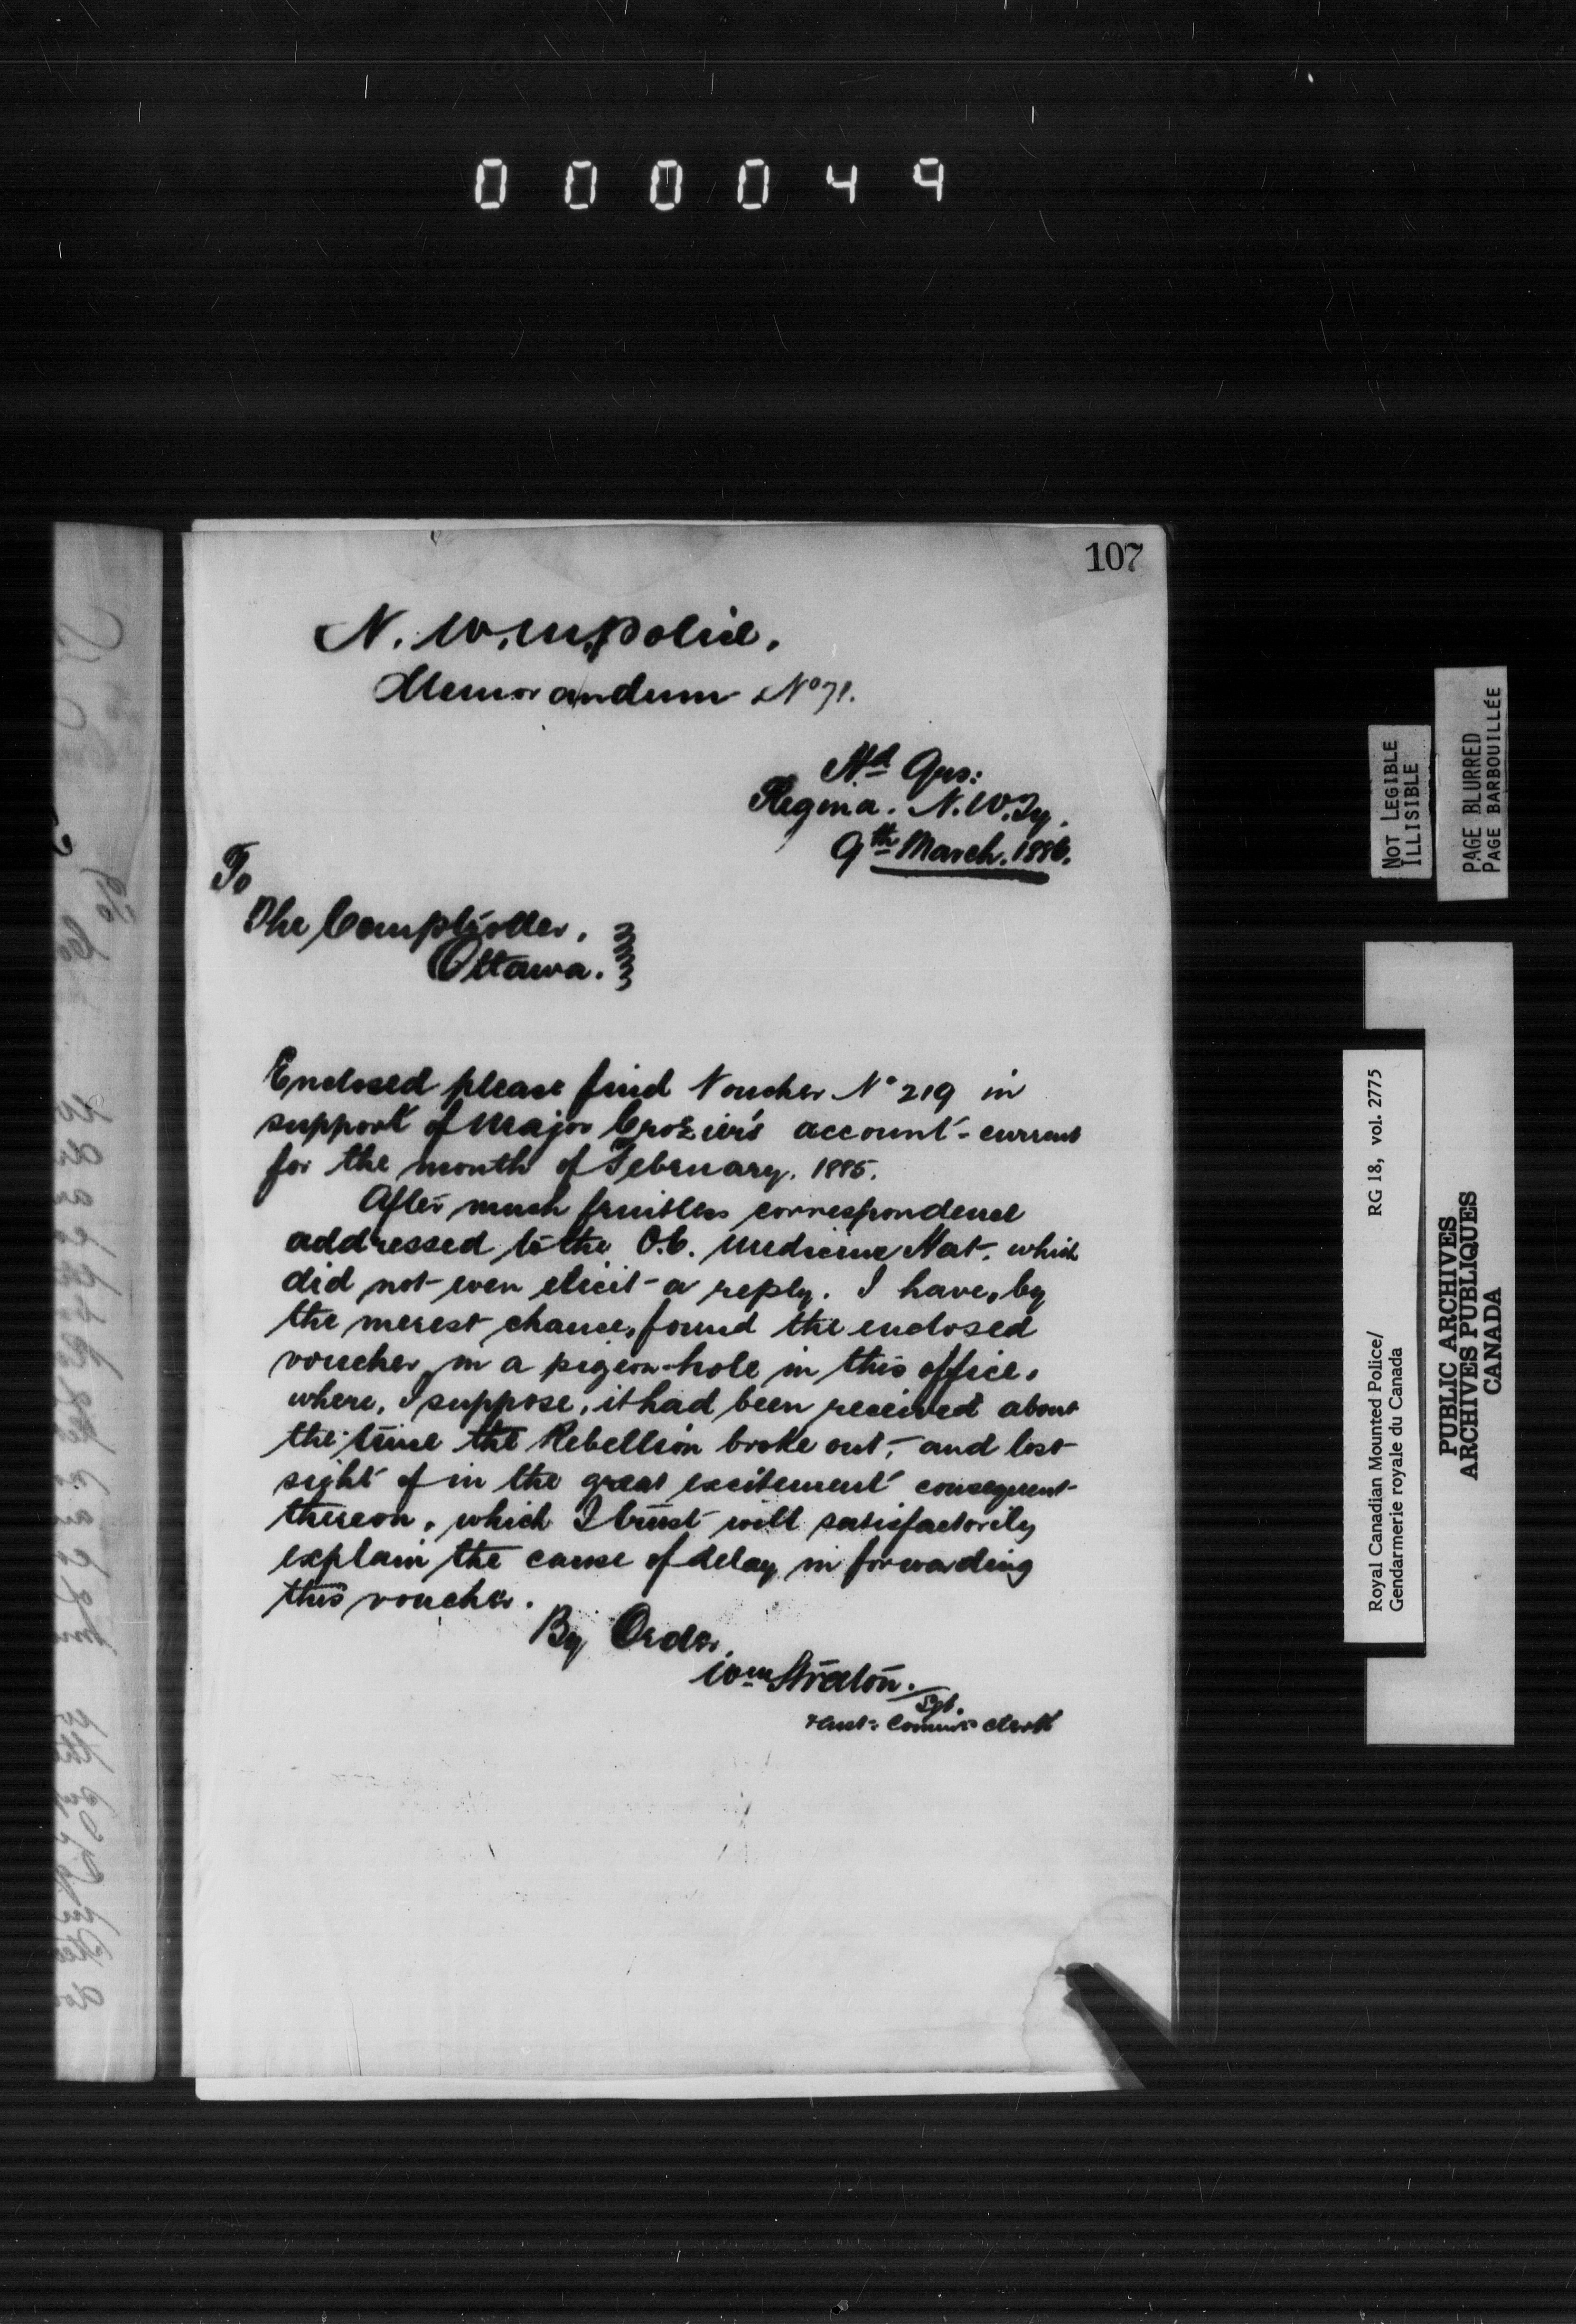 000049
107
N.W.M. Police.
Memorandum No 71.
Hd Qrs:
Regina. N.W.Ty.
9th March. 1886.
To
The Comptroller.
Ottawa.
Enclosed please find Voucher No 219 in
support of Major Crozier's account-current
for the month of February. 1885.
After much fruitless correspondence
addressed to the O.C. Medicine Hat. which
did not even elicit a reply. I have, by
the merest chance, found the enclosed
voucher in a pigeon-hole in this office,
where, I suppose, it had been received about
the time the Rebellion broke out, and lost
sight of in the great excitement consequent
thereon, which I trust will satisfactorily
explain the cause of delay in forwarding
this voucher.
By Order,
Wm
Sgt.
Clerk
NOT LEGIBLE
ILLISIBLE
PAGE BLURRED
PAGE BARBOUILLÉE
Royal Canadian Mounted Police/ RG 18, vol. 2775
Gendarmerie royale du Canada
PUBLIC ARCHIVES
ARCHIVES PUBLIQUES
CANADA